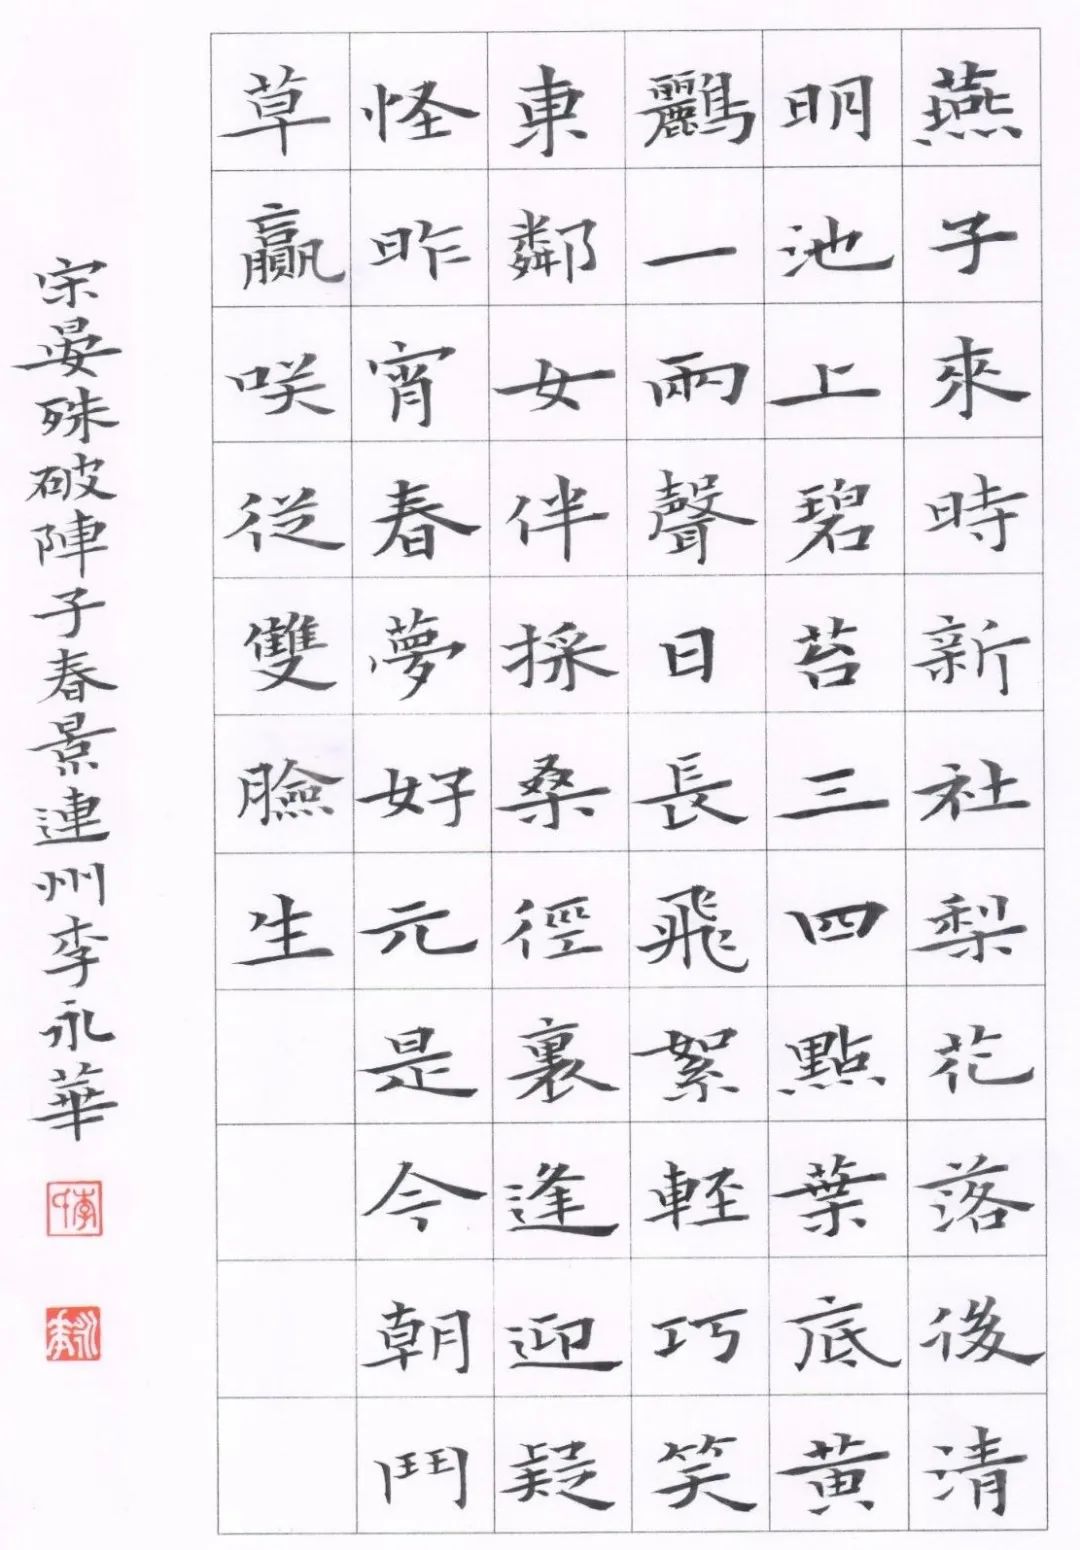 燕子來時新社梨花落後清
明池上碧苔三四點葉底黄
鸝一兩聲日長飛絮輕巧笑
東鄰女伴採桑徑裏逢迎疑
怪昨宵春夢好元是今朝鬥
草贏咲從雙臉生
宋晏殊破陣子春景連州李永華